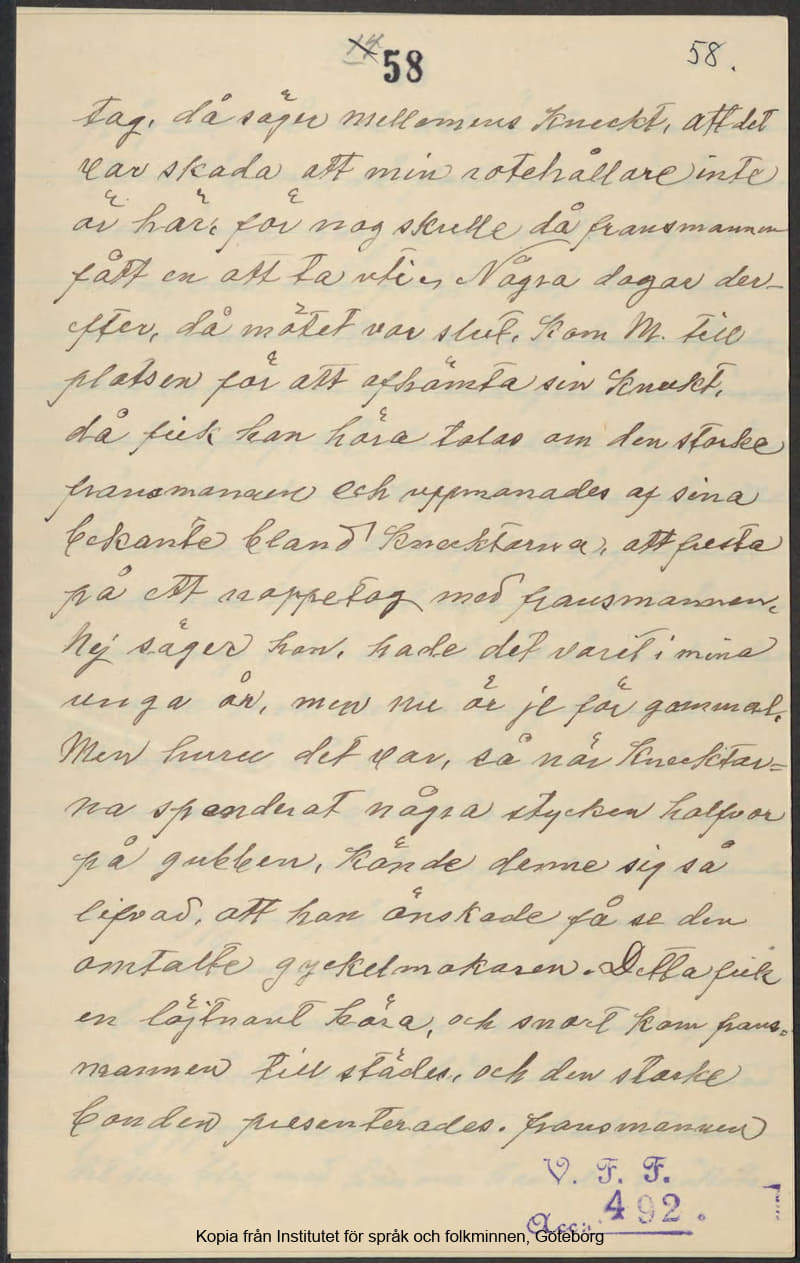 14 58 58.
tag, då säger mellomens Kneckt, att det
var skada att min rotehållare inte
är här, för nog skulle då fransmannen
fått en att ta uti", Några dagar der-
efter, då mötet var slut, kom M. till
platsen för att afhämta sin Kneckt,
då fick han höra talas om den starke
fransmannen och uppmanades af sina
bekante bland Knecktarna, att fresta
på ett nappetag med fransmannen,
Nej säger han, hade det varit i mina
unga år, men nu är je för gammal,
Men huru det var, så när Knecktar=
na spenderat några stycken halfvor
på gubben, kände denne sig så
lifvad, att han önskade få se den
omtalte gyckelmakaren. Detta fick
en löjtnant höra, och snart kom frans=
mannen till städes, och den starke
bonden presenterades. fransmannen
V. F. F.
Acc. 492.
Kopia från Institutet för språk och folkminnen, Göteborg